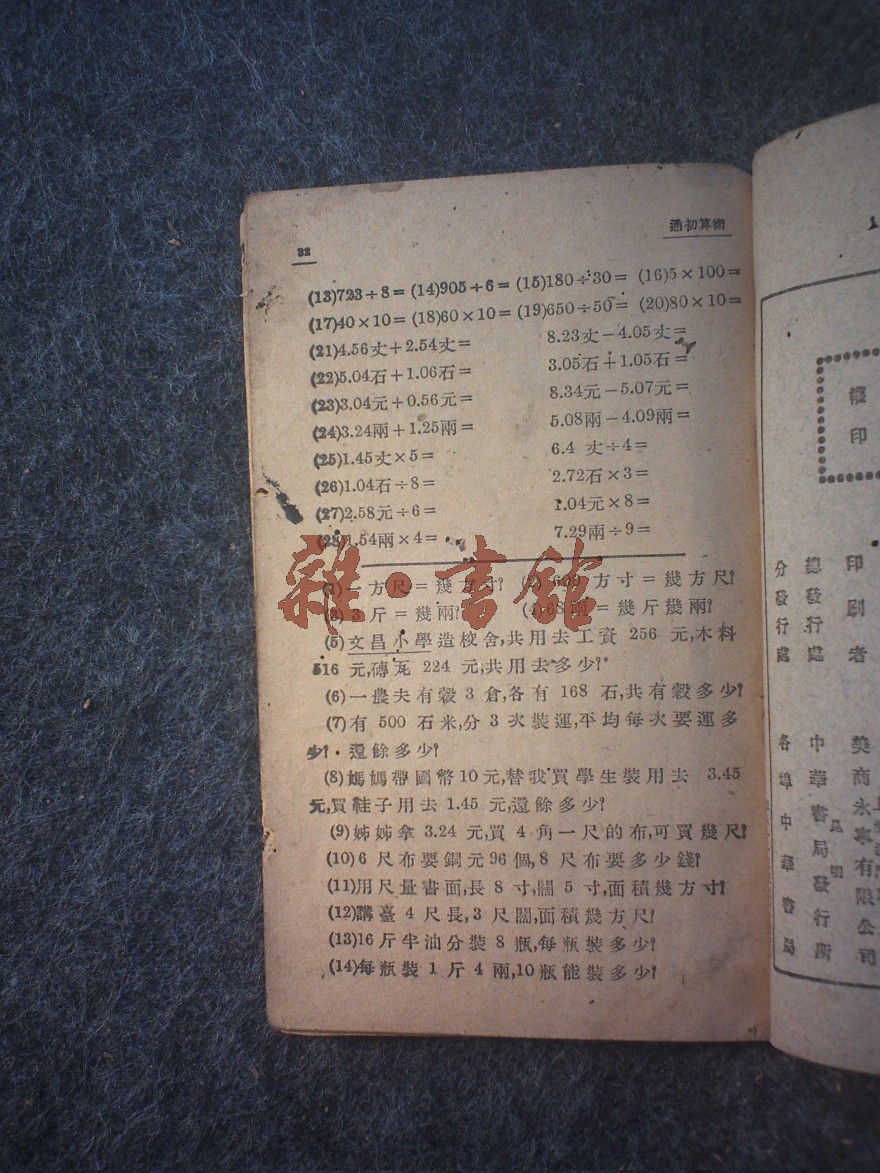 32
通初算術
(13)723÷8= (14)905÷6= (15)180÷30= (16)5×100=
(17)40×10= (18)60×10= (19)650÷50= (20)80×10=
(21)4.56丈+2.54丈= 8.23丈-4.05丈=
(22)5.04石+1.06石= 3.05石+1.05石=
(23)3.04元+0.56元= 8.34元-5.07元=
(24)3.24兩+1.25兩= 5.08兩-4.09兩=
(25)1.45丈×5= 6.4 丈÷4=
(26)1.04石÷8= 2.72石×3=
(27)2.58元÷6= 1.04元×8=
(28)1.54兩×4= 7.29兩÷9=
(1)一方尺=幾方寸? (2) 609 方寸=幾方尺?
(3) 3斤=幾兩? (4)68兩=幾斤幾兩?
(5)文昌小學造校舍,共用去工資 256 元,木料
516 元,磚瓦 224 元,共用去多少?
(6)一農夫有穀 3 倉,各有 168 石,共有穀多少?
(7)有 500 石米,分 3 次裝運,平均每次要運多
少?還餘多少?
(8)媽媽帶國幣10元,替我買學生裝用去 3.45
元,買鞋子用去 1.45 元,還餘多少?
(9)姊姊拿 3.24 元,買 4 角一尺的布,可買幾尺?
(10)6 尺布要銅元96個,8 尺布要多少錢?
(11)用尺量書面,長 8 寸,闊 5 寸,面積幾方寸?
(12)講臺 4 尺長,3 尺闊,面積幾方尺?
(13)16 斤半油分裝 8 瓶,每瓶裝多少?
(14)每瓶裝 1 斤 4 兩,10瓶能裝多少?
雜·書館
權印
印刷者
美商永寧有限公司
總發行處
中華書局發行所
昆明
分發行處
各埠中華書局